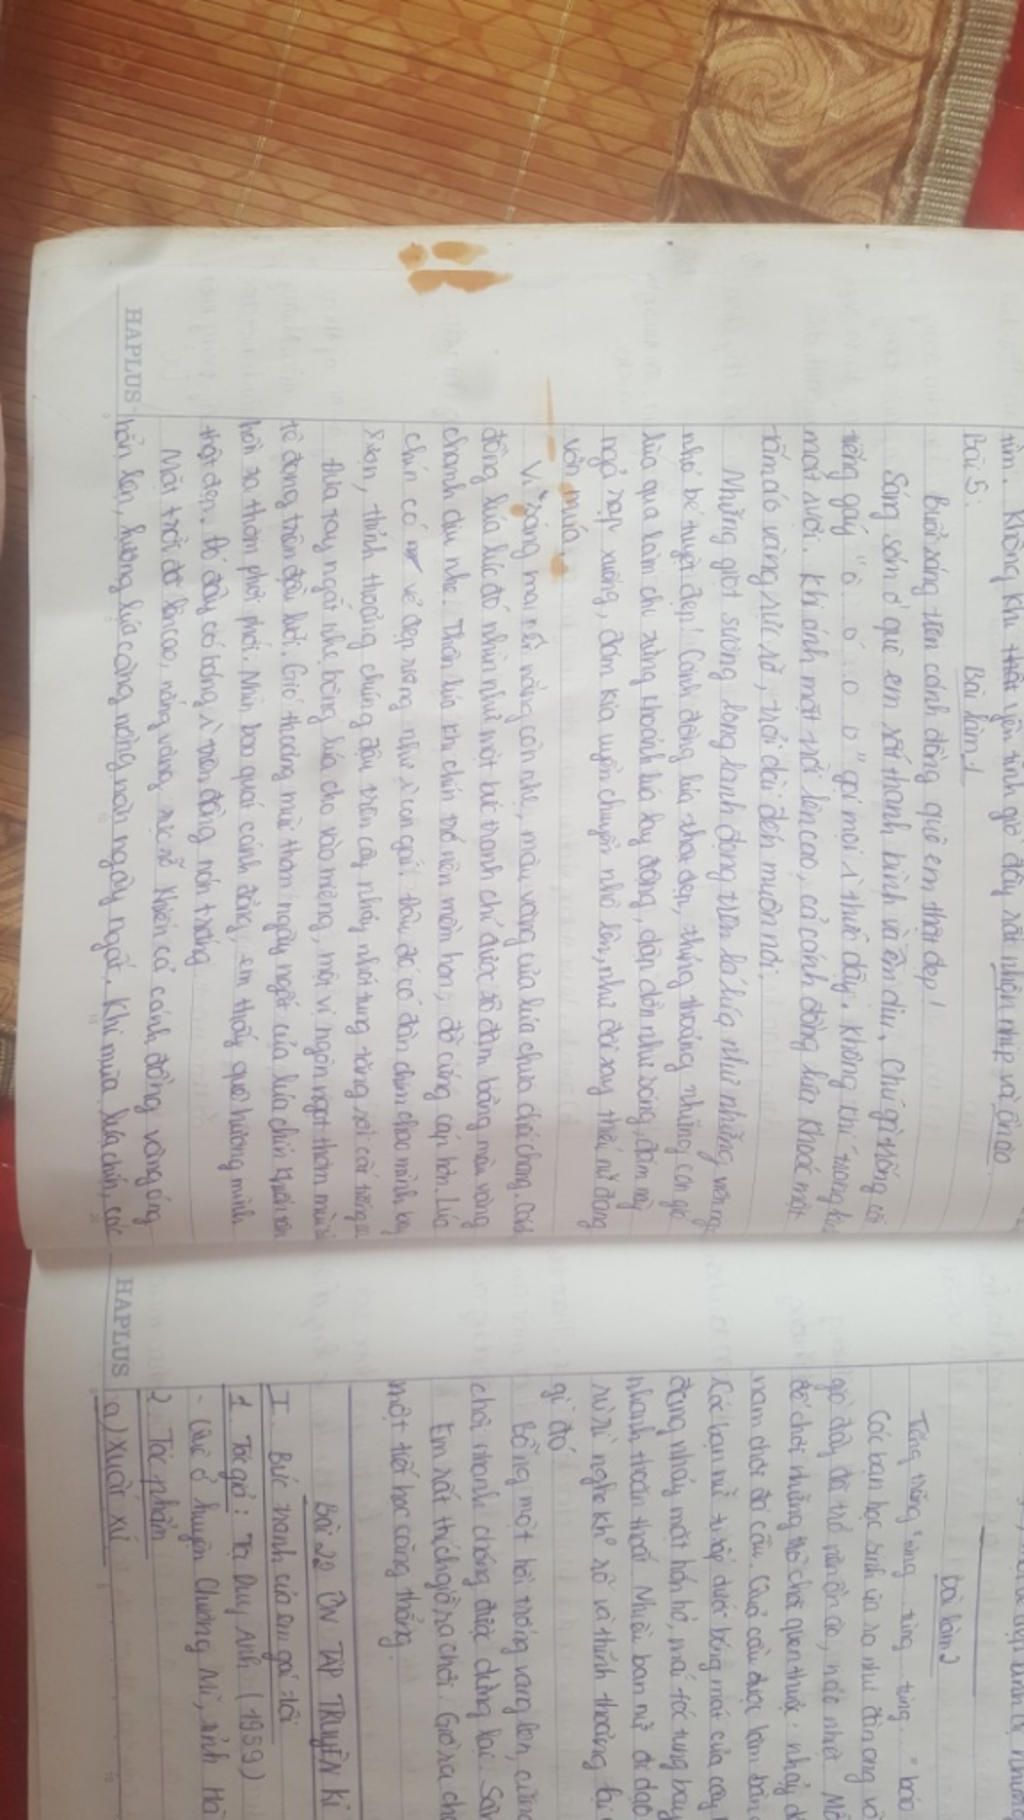 tìm. Không khí thật yên tĩnh giờ đây rất nhộn nhịp và ồn ào
Bài 5:
Bài làm 1
Buổi sáng trên cánh đồng quê em thật đẹp!
Sáng sớm ở quê em rất thanh bình và êm dịu. Chú gà trống cất
tiếng gáy "ò ó o o" gọi mọi người thức dậy. Không khí trong
mát rượi. Khi ánh mặt trời lên cao, cả cánh đồng lúa khoác một
tấm áo vàng rực rỡ, trải dài đến muôn nơi.
Những giọt sương long lanh đọng trên lá lúa như những viên ngọc
nhỏ bé tuyệt đẹp! Cánh đồng lúa thật đẹp, thỉnh thoảng những cơn gió
lùa qua làm cho từng khoảnh lúa lay động, dập dờn như sóng, đám này
ngả rạp xuống, đám kia uyển chuyển nhô lên, như đôi tay thiếu nữ đang
vờn múa.
Vì sáng mai nên nắng còn nhẹ, màu vàng của lúa chưa chói chang. Cánh
đồng lúa lúc đó nhìn như một bức tranh chỉ được tô đậm bằng màu vàng
chanh dịu nhẹ. Thân lúa khi chín trở nên mềm hơn, đỡ cứng cáp hơn. Lúa
chín có vẻ đẹp riêng như người con gái. Đâu đó có đàn chim chao mình bay
liệng, thỉnh thoảng chúng đậu trên cây nhảy nhót tung tăng rồi cất tiếng hót
Đưa tay ngắt nhẹ bông lúa cho vào miệng, một vị ngòn ngọt thơm mùi sữa
tê đọng trên đầu lưỡi. Gió thoảng mùi thơm ngây ngất của lúa chín quện
hơi xa thơm phơi phới. Nhìn bao quát cánh đồng, em thấy quê hương mình
thật đẹp. Đó đây có bóng người trên đồng nón trắng
Mặt trời đã lên cao, nắng vàng rực rỡ khiến cả cánh đồng vàng óng
hẳn lên, hương lúa càng nồng nàn ngây ngất. Khi mùa lúa chín, các
HAPLUS
Bài làm 2
Tiếng trống "tùng tùng tùng tùng..." báo
Các bạn học sinh ùa ra như đàn ong vỡ
giờ đây đã trở nên ồn ào, náo nhiệt. Mỗ
đồ chơi những trò chơi quen thuộc: nhảy d
nam chơi đá cầu. Quả cầu được
Các bạn nữ túm tụm dưới bóng mát của cây
đang nhảy mặt hớn hở, mái tóc tung bay
nhanh thoăn thoắt. Nhiều bạn nữ đi dạo
rủ rỉ nghe khe khẽ và thỉnh thoảng lại
gì đó
Bỗng một hồi trống vang lên, cũng
chơi nhanh chóng được dừng lại. Sân
Em rất thích giờ ra chơi. Giờ ra ch
một tiết học căng thẳng.
Bài 22 ÔN TẬP TRUYỆN KÍ
I. Bức tranh của em gái tôi
1. Tác giả: Tạ Duy Anh (1959)
- Quê ở huyện Chương Mĩ, tỉnh Hà
2. Tác phẩm
a) Xuất xứ
HAPLUS